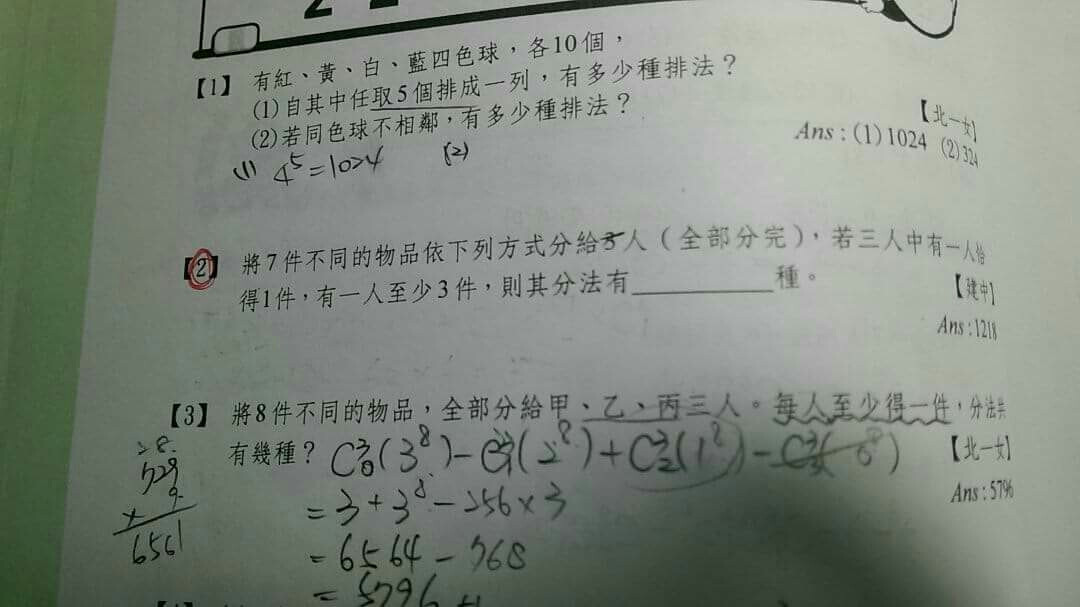 【1】 有紅、黃、白、藍四色球，各10個，
(1)自其中任取5個排成一列，有多少種排法？
(2)若同色球不相鄰，有多少種排法？
【北一女】
Ans : (1)1024 (2)324
(1) 4⁵=1024 (2)
【2】 將7件不同的物品依下列方式分給3人（全部分完），若三人中有一人恰
得1件，有一人至少3件，則其分法有________種。
【建中】
Ans : 1218
【3】 將8件不同的物品，全部分給甲、乙、丙三人。每人至少得一件，分法共
有幾種？ C³₀(3⁸)-C³₁(2⁸)+C³₂(1⁸)-C³₃(0⁸)
【北一女】
Ans : 5796
=3+3⁸-256×3
=6564-768
=5796
28
729
× 9
6561